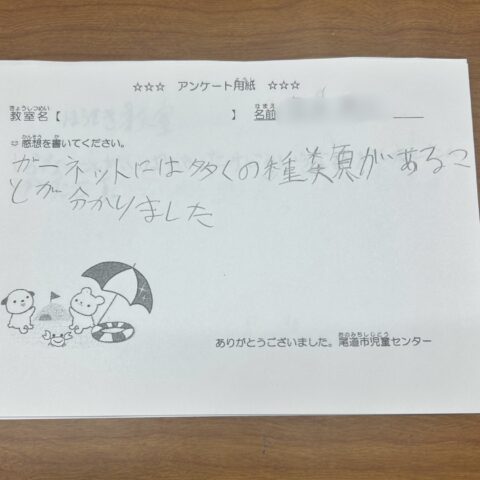 ☆☆☆ アンケート用紙 ☆☆☆
教室名【 ほうせき教室 】 名前
☺感想を書いてください。
ガーネットには多くの種類があるこ
とが分かりました
ありがとうございました。尾道市児童センター